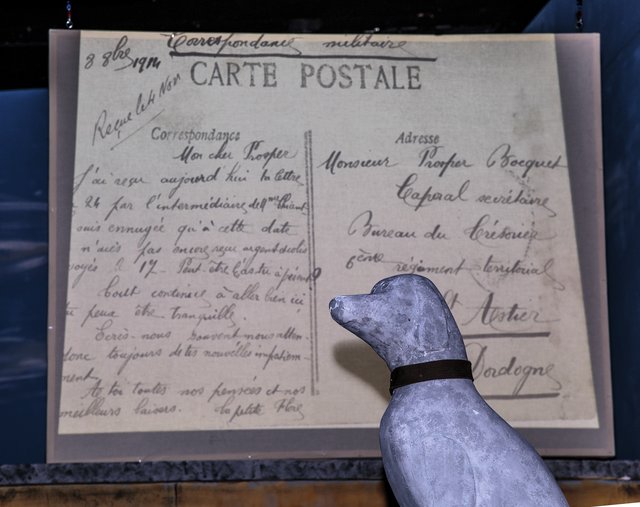 8 8bre 1914
Correspondance militaire
CARTE POSTALE
Reçue le 4 Nov
Correspondance
Mon cher Prosper
J'ai reçu aujourd'hui ta lettre
24 par l'intermédiaire de Mme
suis ennuyée qu'à cette date
n'aies pas encore reçu argent
voyés le 17. Peut-être l'as tu à présent
Tout continue à aller bien ici
tu peux être tranquille.
Ecris-nous souvent nous atten-
dons toujours de tes nouvelles impatiem-
ment
A toi toutes nos pensées et nos
meilleurs baisers. ta petite
Adresse
Monsieur Prosper Bocquet
Caporal secrétaire
Bureau du Trésorier
6ème régiment territorial
St Astier
Dordogne